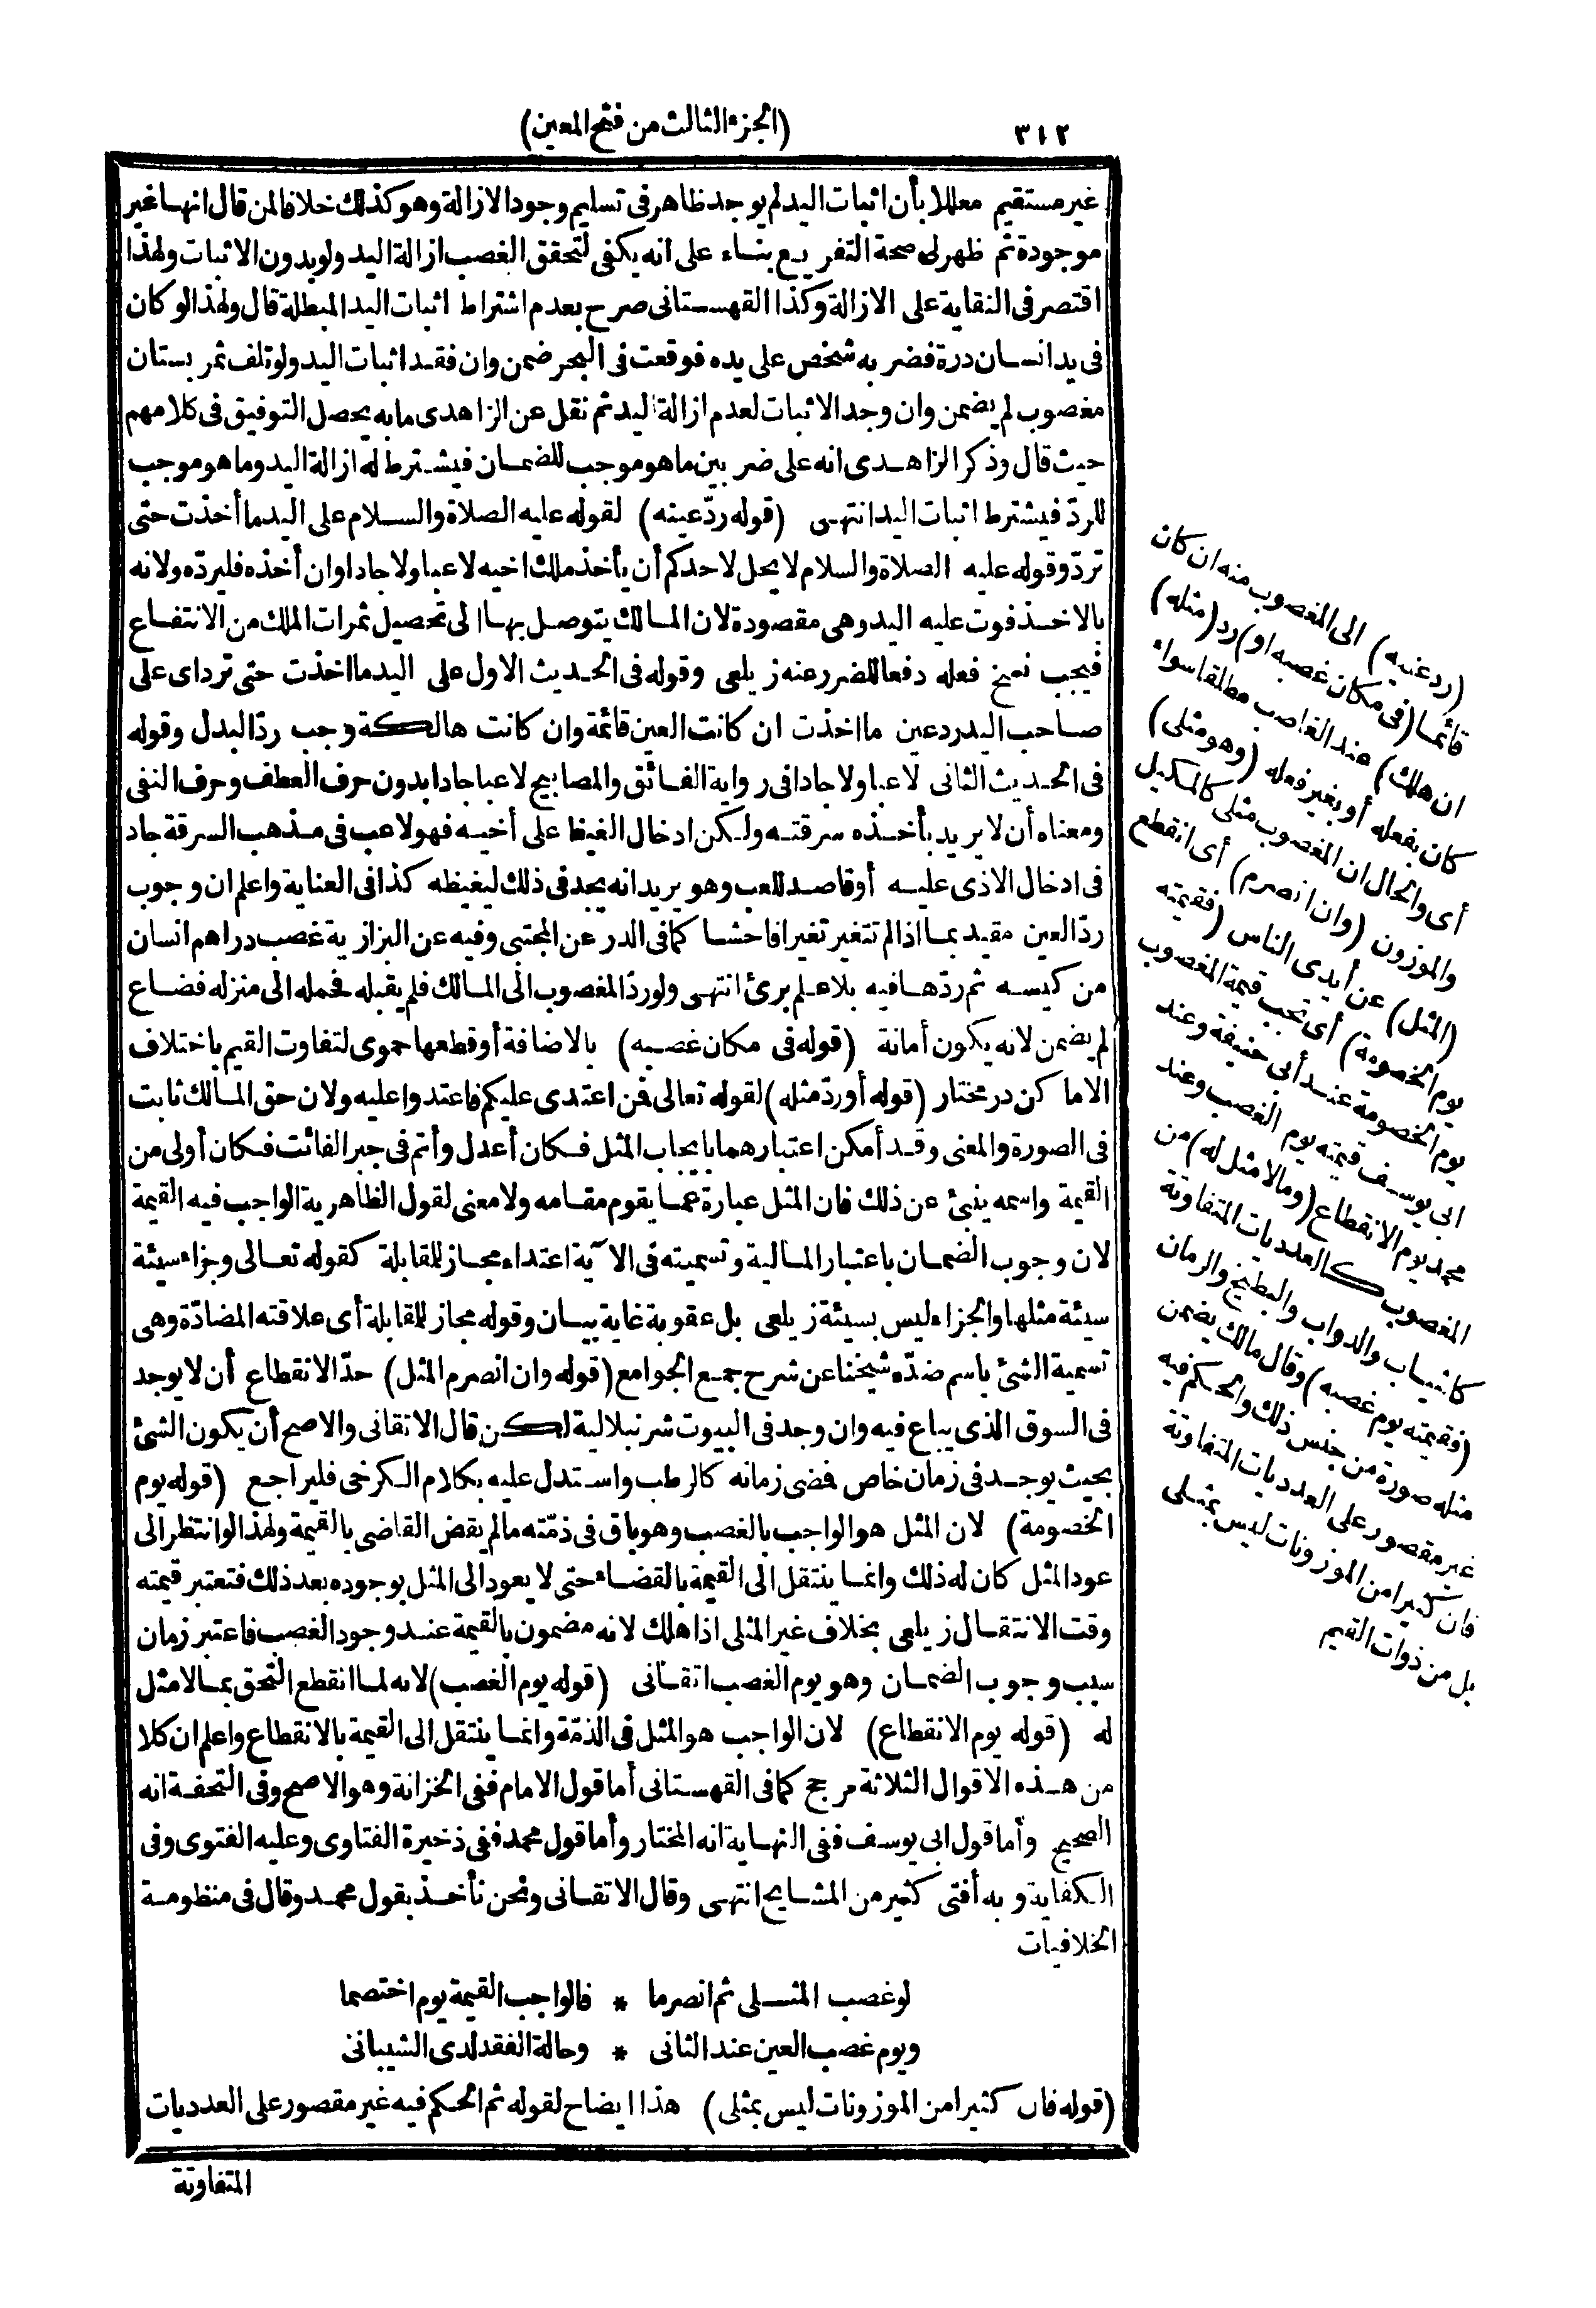 ٣١٢
(الجزء الثالث من فتح المعين)
غير مستقيم معللا بأن اثبات اليد لم يوجد ظاهر فى تسليم وجود الازالة وهو كذلك خلافا لمن قال انها غير
موجودة ثم ظهر لى صحة التفريع بناء على انه يكفى لتحقق الغصب ازالة اليد ولو بدون الاثبات ولهذا
اقتصر فى النقاية على الازالة وكذا القهستانى صرح بعدم اشتراط اثبات اليد المبطلة قال ولهذا لو كان
فى يد انسان درة فضر به شخص على يده فوقعت فى البحر ضمن وان فقد اثبات اليد ولو تلف ثمر بستان
مغصوب لم يضمن وان وجد الاثبات لعدم ازالة اليد ثم نقل عن الزاهدى ما به يحصل التوفيق فى كلامهم
حيث قال وذكر الزاهدى انه على ضر بين ما هو موجب للضمان فيشترط له ازالة اليد وما هو موجب
للردّ فيشترط اثبات اليد انتهى (قوله ردّعينه) لقوله عليه الصلاة والسلام على اليد ما أخذت حتى
تردّ وقوله عليه الصلاة والسلام لا يحل لاحدكم أن يأخذ ملك اخيه لاعبا ولا جادا وان أخذه فليردّه ولانه
بالاخذ فوت عليه اليد وهى مقصودة لان المالك يتوصل بها الى تحصيل ثمرات الملك من الانتفاع
فيجب نسخ فعله دفعا للضرر عنه زيلعى وقوله فى الحديث الاول على اليد ما اخذت حتى ترد اى على
صاحب اليد رد عين ما اخذت ان كانت العين قائمة وان كانت هالكة وجب ردّ البدل وقوله
فى الحديث الثانى لاعبا ولا جادا فى رواية الفائق والمصابيح لاعبا جادا بدون حرف العطف وحرف النفى
ومعناه أن لا يريد بأخذه سرقته ولكن ادخال الغيظ على أخيه فهو لاعب فى مذهب السرقة جاد
فى ادخال الاذى عليه أو قاصد للعب وهو يريد انه يجد فى ذلك ليغيظه كذا فى العناية واعلم ان وجوب
ردّ العين مقيد بما اذا لم تتغير تغيرا فاحشا كما فى الدر عن المجتبى وفيه عن البزازية غصب دراهم انسان
من كيسه ثم ردّها فيه بلا علم برئ انتهى ولو ردّ المغصوب الى المالك فلم يقبله فحمله الى منزله فضاع
لم يضمن لانه يكون أمانة (قوله فى مكان غصبه) بالاضافة أو قطعها حموى لتفاوت القيم باختلاف
الاماكن در مختار (قوله أو ردّ مثله) لقوله تعالى فمن اعتدى عليكم فاعتدوا عليه ولان حق المالك ثابت
فى الصورة والمعنى وقد أمكن اعتبارهما بايجاب المثل فكان أعدل وأتم فى جبر الفائت فكان أولى من
القيمة واسمه ينبئ عن ذلك فان المثل عبارة عما يقوم مقامه ولا معنى لقول الظاهرية الواجب فيه القيمة
لان وجوب الضمان باعتبار المالية وتسميته فى الآية اعتداء مجاز للمقابلة كقوله تعالى وجزاء سيئة
سيئة مثلها والجزاء ليس بسيئة زيلعى بل عقوبة غاية بيان وقوله مجاز للمقابلة أى علاقته المضادّة وهى
تسمية الشئ باسم ضدّه شيخنا عن شرح جمع الجوامع (قوله وان انصرم المثل) حدّ الانقطاع أن لا يوجد
فى السوق الذى يباع فيه وان وجد فى البيوت شرنبلالية لكن قال الاتقانى والاصح أن يكون الشئ
بحيث يوجد فى زمان خاص فمضى زمانه كالرطب واستدل عليه بكلام الكرخى فليراجع (قوله يوم
الخصومة) لان المثل هو الواجب بالغصب وهو باق فى ذمّته ما لم يقض القاضى بالقيمة ولهذا لو انتظر الى
عود المثل كان له ذلك وانما ينتقل الى القيمة بالقضاء حتى لا يعود الى المثل بوجوده بعد ذلك فتعتبر قيمته
وقت الانتقال زيلعى بخلاف غير المثلى اذا هلك لانه مضمون بالقيمة عند وجود الغصب فاعتبر زمان
سبب وجوب الضمان وهو يوم الغصب اتقانى (قوله يوم الغصب) لانه لما انقطع التحق بما لا مثل
له (قوله يوم الانقطاع) لان الواجب هو المثل فى الذمّة وانما ينتقل الى القيمة بالانقطاع واعلم ان كلا
من هذه الاقوال الثلاثة مرجح كما فى القهستانى أما قول الامام ففى الخزانة وهو الاصح وفى التحفة انه
الصحيح وأما قول ابى يوسف ففى النهاية انه المختار وأما قول محمد ففى ذخيرة الفتاوى وعليه الفتوى وفى
الكفاية وبه أفتى كثير من المشايخ انتهى وقال الاتقانى ونحن نأخذ بقول محمد وقال فى منظومة
الخلافيات
لو غصب المثلى ثم انصرما * فالواجب القيمة يوم اختصما
ويوم غصب العين عند الثانى * وحالة الفقد لدى الشيبانى
(قوله فان كثيرا من الموزونات ليس بمثلى) هذا ايضاح لقوله ثم الحكم فيه غير مقصور على العدديات
المتفاوتة
(رد عينه) الى المغصوب منه ان كان
قائما (فى مكان غصبه او) رد (مثله)
ان هلك) عند الغاصب مطلقا سواء
كان بفعله أو بغير فعله (وهو مثلى)
أى والحال ان المغصوب مثلى كالمكيل
والموزون (وان انصرم) أى انقطع
(المثل) عن أيدى الناس (فقيمته
يوم الخصومة) أى تجب قيمة المغصوب
يوم الخصومة عند أبى حنيفة وعند
ابى يوسف قيمته يوم الغصب وعند
محمد يوم الانقطاع (وما لا مثل له) من
المغصوب كالعدديات المتفاوتة
كالثياب والدواب والبطيخ والرمان
(فقيمته يوم غصبه) وقال مالك يضمن
مثله صورة من جنس ذلك والحكم فيه
غير مقصور على العدديات المتفاوتة
فان كثيرا من الموزونات ليس بمثلى
بل من ذوات القيم